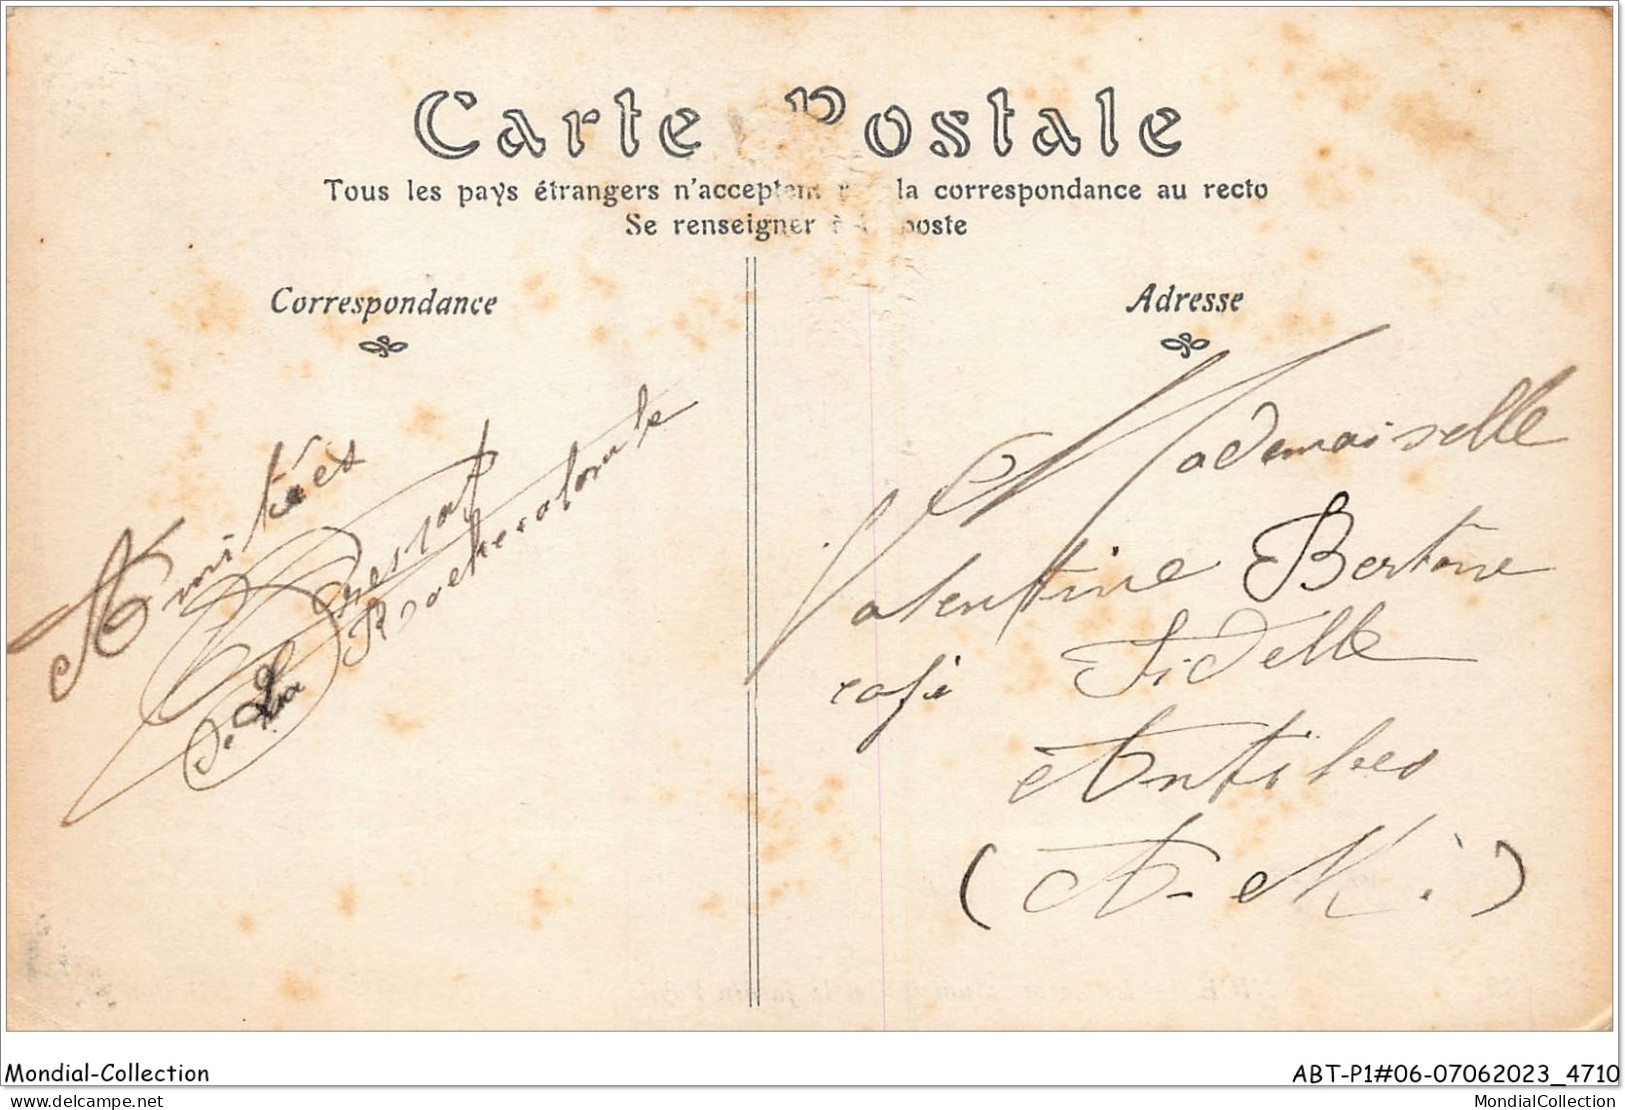 Carte Postale
Tous les pays étrangers n'acceptent la correspondance au recto
Se renseigner à la poste
Correspondance
Adresse
Amitiées
de La Rochecolombe
Mademoiselle
Valentine Bertone
café Fidelle
Antibes
(A-M.)
Mondial-Collection
ABT-P1#06-07062023_4710
delcampe.net
MondialCollection